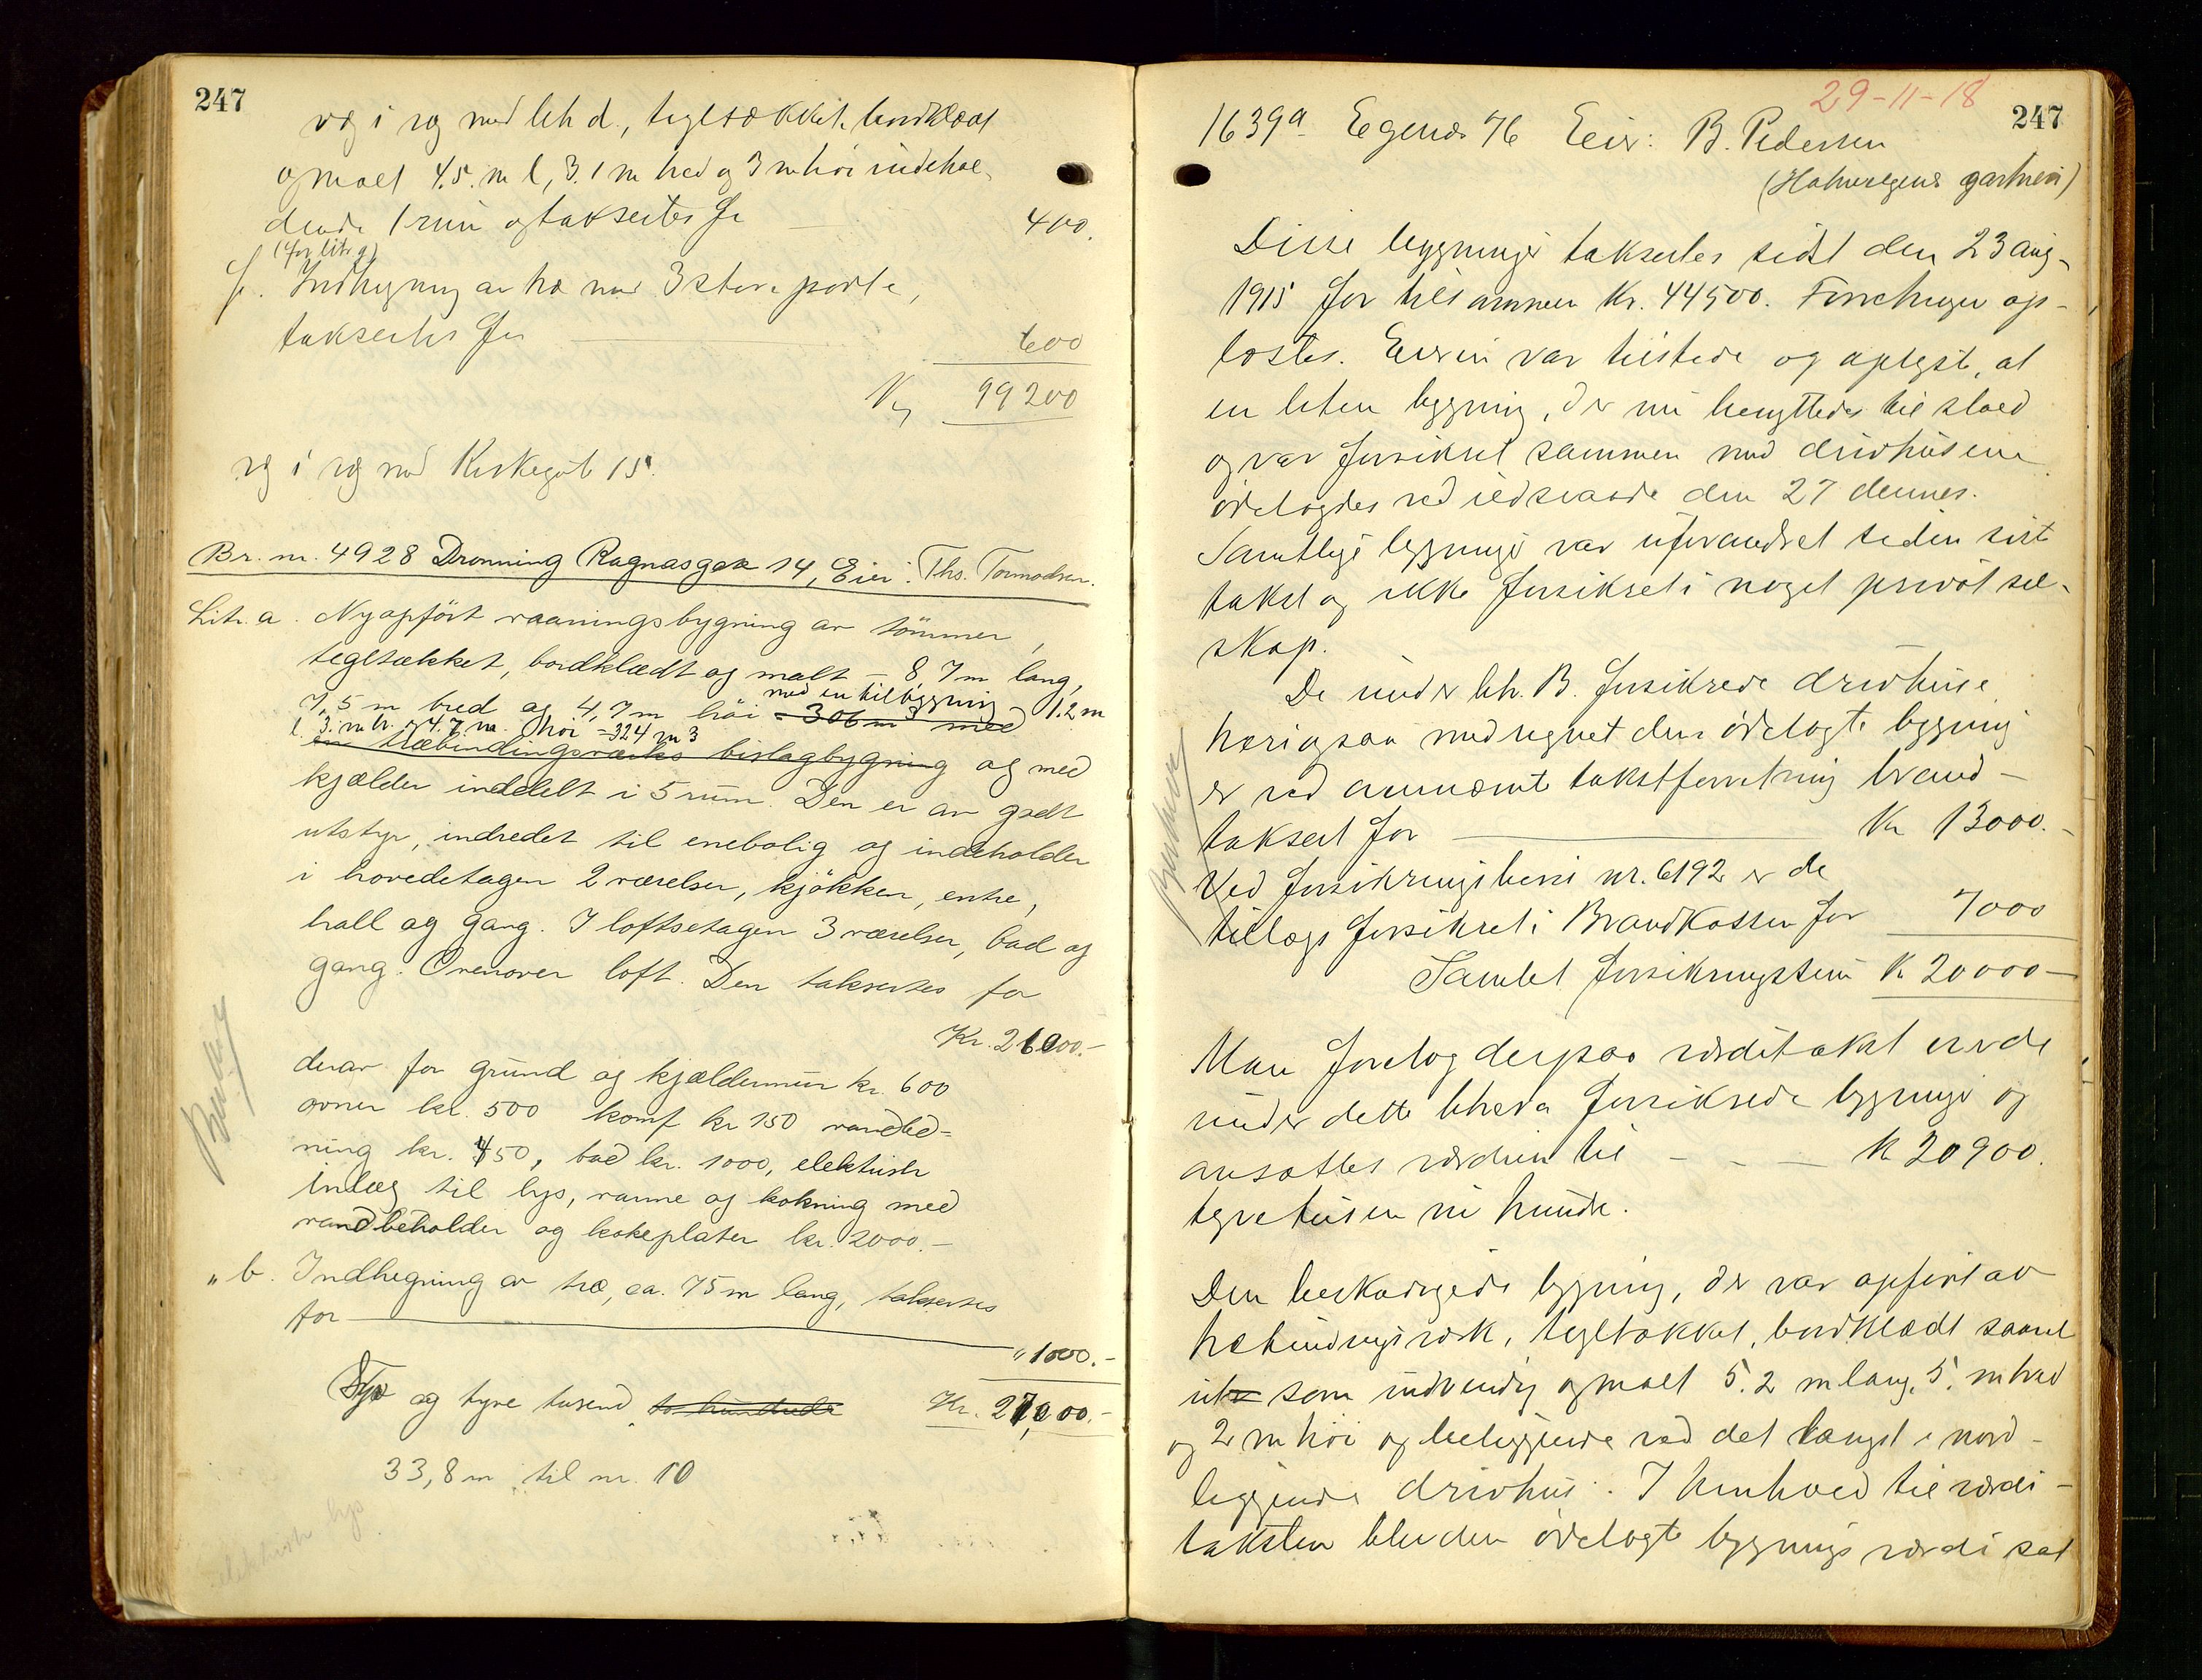 247
væg i væg med litr d, teglsækket, bordklædt
og malt 4.5. m l, 3.1 m bred og 3 m høi indehol-
dende 1 rum og takseres for 400.
(for litr g)
f. Indhegning av træ med 3 store porte,
takseres for 600
Kr 99200
væg i væg med Kirkegat 15.
Br. nr. 4928 Dronning Ragnasgate 14, Eier: Ths. Tormodsen.
Litr. a. Nyopført vaaningsbygning av tömmer,
teglsækket, bordklædt og malt – 8,7 m lang,
med en tilbygning 1.2 m
7,5 m bred og 4,7 m höi = 306 m3 med
l. 3. m br. og 4.7 m. høi = 324 m3
en træbindingsværks bislagbygning og med
kjælder inddelt i 5 rum. Den er av godt
utstyr, indredet til enebolig og indeholder
i hovedetagen 2 værelser, kjökken, entre,
hall og gang. I loftsetagen 3 værelser, bad og
gang. Ovenover loft. Den takseres for
Kr. 26000.-
derav for grund og kjældermur kr. 600
ovner kr. 500 komf kr 150 vandled-
ning kr. 450, bad kr. 1000, elektrisk
inlæg til lys, varme og kokning med
vandbeholder og kokeplater kr. 2000.-
" b. Indhegning av træ, ca. 75 m lang, takseres
for " 1000.-
Syv og tyve tusend to hundrede Kr. 27000.-
33,8 m til nr. 10
elektrisk lys
29-11-18
247
1639a Egenes 76 Eier: B. Pedersen
(Hahnsegens gartneri)
Disse bygninger takseres sidst den 23 aug-
1915 for tilsammen Kr. 44500. Forretningen op-
læstes. Eieren var tilstede og oplyste, at
en liten bygning, der nu benyttedes til stald
og var forsikret sammen med drivhusene
ødelagdes ved ildsvaade den 27 dennes.
Samtlige bygninger var uforandret siden sist
takst og ikke forsikret i noget privat sel-
skap.
De under litr. B. forsikrede drivhuse
heri ogsaa medregnet den ødelagte bygning
er ved ovennævnte takstforretning brand-
taksert for Kr 13000.-
Ved forsikringsbevis nr. 6192 er de
tillægs forsikret i Brandkassen for 7000
Samlet forsikringssum Kr 20000-
Man foretog derpaa værditakst over de
under dette litera forsikrede bygninger og
ansattes værdien til - - - Kr 20900.
tyvetusen ni hundre.
Den beskadigede bygning, der var opført av
træbindingsverk, tegltækket, bordklædt saavel
utv som indvendig og malt 5.2 m lang, 5. m bred
og 2 m høi og beliggende ved det længst i nord-
liggende drivhus. I henhold til værdi-
taksten blev den ødelagte bygnings værdi sat